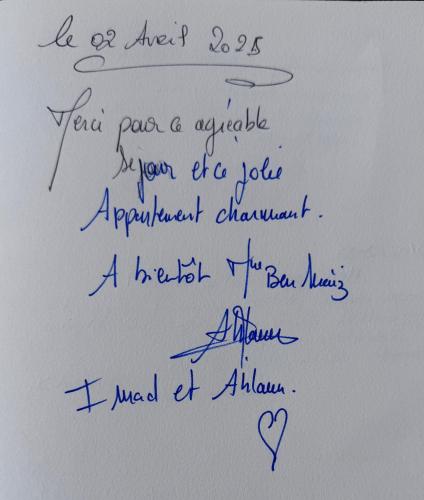 le 02 Avril 2025
Merci pour ce agréable
séjour et ce jolie
Appartement charmant.
A bientôt Mme Ben
Ahlam
Imad et Ahlam.